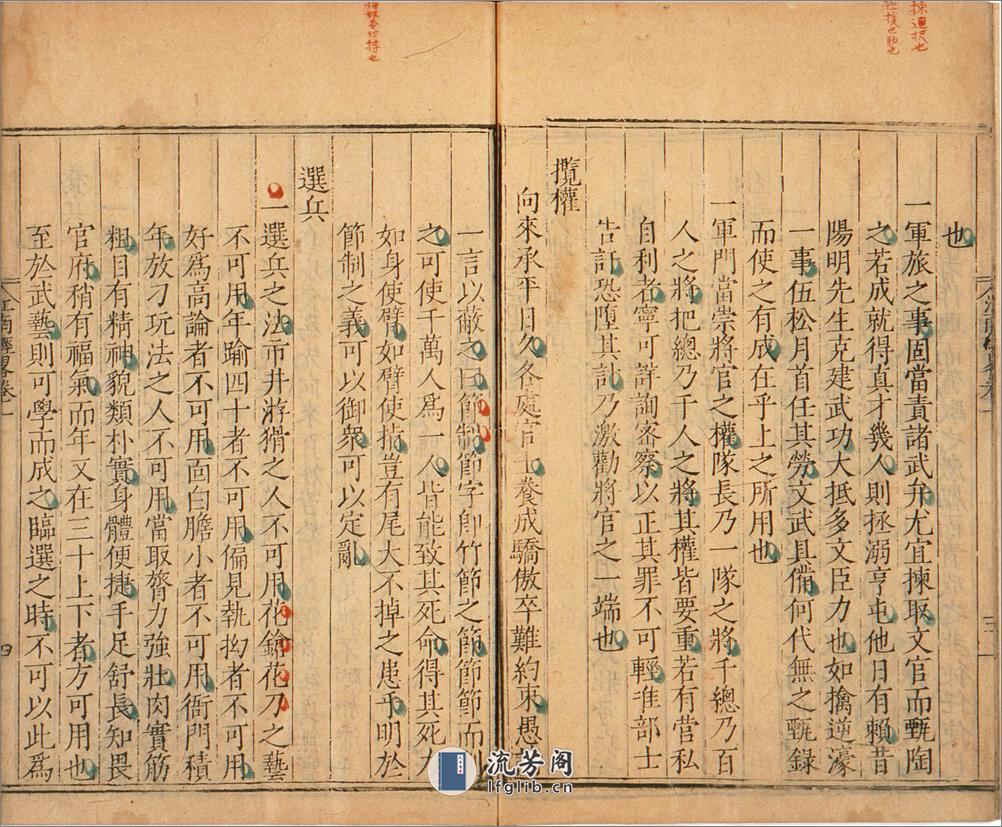 也
一軍旅之事固當責諸武弁尤宜揀取文官而甄陶
之若成就得真才幾人則拯溺亨屯他日有賴昔
陽明先生克建武功大抵多文臣力也如擒逆濠
一事伍松月首任其勞文武具備何代無之甄錄
而使之有成在乎上之所用也
一軍門當崇將官之權隊長乃一隊之將千總乃百
人之將把總乃千人之將其權皆要重若有營私
自利者寧可詳詢密察以正其罪不可輕准部士
告訐恐墮其計乃激勸將官之一端也
攬權
向來承平日久各處官士養成驕傲卒難約束愚
一言以蔽之曰節制節字卽竹節之節節節而制
之可使千萬人為一人皆能致其死命得其死力
如身使臂如臂使指豈有尾大不掉之患乎明於
節制之義可以御衆可以定亂
選兵
一選兵之法市井游猾之人不可用花鎗花刀之藝
不可用年踰四十者不可用偏見執拗者不可用
好為高論者不可用面白膽小者不可用衙門積
年放刁玩法之人不可用當取膂力強壯肉實筋
粗目有精神貌類朴實身體便捷手足舒長知畏
官府稍有福氣而年又在三十上下者方可用也
至於武藝則可學而成之臨選之時不可以此為
揀選択也
三
江南經畧卷一
四
流芳阁
lfglib.cn